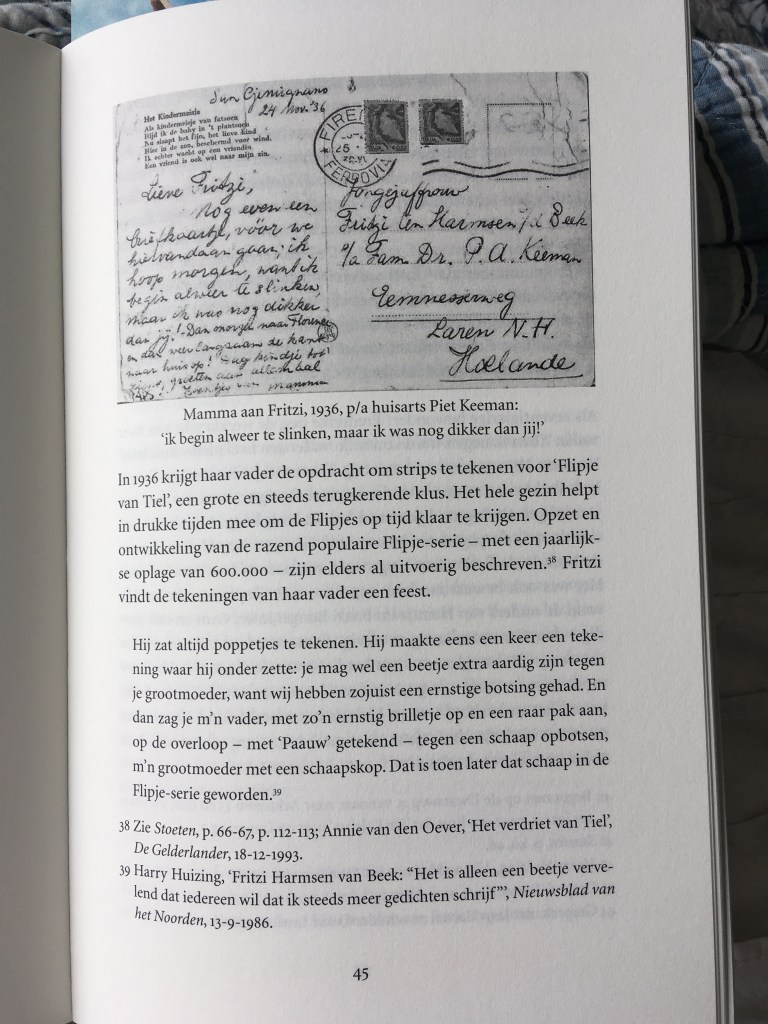 San Gimignano
24 Nov. '36
Het Kindermeisje
Als kindermeisje van fatsoen
Rijd ik de baby in 't plantsoen
Nu slaapt het fijn, het lieve kind
Hier in de zon, beschermd voor wind.
Ik echter wacht op een vriendin
Een vriend is ook wel naar mijn zin.
Lieve Fritzi,
Nog even een
briefkaartje, vóór we
hiervandaan gaan; ik
hoop morgen, want ik
begin alweer te slinken,
maar ik was nog dikker
dan jij! Dan morgen naar Florence
en dan weer langzaam de kant
naar huis op! Dag kindje tot
groeten aan allemaal
van mamma
FERROVIA
Jongejuffrouw
Fritzi ten Harmsen v/d Beek
p/a Fam. Dr. P. A. Keeman
Eemnesserweg
Laren N.H.
Hollande
Mamma aan Fritzi, 1936, p/a huisarts Piet Keeman:
‘ik begin alweer te slinken, maar ik was nog dikker dan jij!’
In 1936 krijgt haar vader de opdracht om strips te tekenen voor ‘Flipje
van Tiel’, een grote en steeds terugkerende klus. Het hele gezin helpt
in drukke tijden mee om de Flipjes op tijd klaar te krijgen. Opzet en
ontwikkeling van de razend populaire Flipje-serie – met een jaarlijk-
se oplage van 600.000 – zijn elders al uitvoerig beschreven.³⁸ Fritzi
vindt de tekeningen van haar vader een feest.
Hij zat altijd poppetjes te tekenen. Hij maakte eens een keer een teke-
ning waar hij onder zette: je mag wel een beetje extra aardig zijn tegen
je grootmoeder, want wij hebben zojuist een ernstige botsing gehad. En
dan zag je m’n vader, met zo’n ernstig brilletje op en een raar pak aan,
op de overloop – met ‘Paauw’ getekend – tegen een schaap opbotsen,
m’n grootmoeder met een schaapskop. Dat is toen later dat schaap in de
Flipje-serie geworden.³⁹
38 Zie Stoeten, p. 66-67, p. 112-113; Annie van den Oever, ‘Het verdriet van Tiel’,
De Gelderlander, 18-12-1993.
39 Harry Huizing, ‘Fritzi Harmsen van Beek: “Het is alleen een beetje verve-
lend dat iedereen wil dat ik steeds meer gedichten schrijf”’, Nieuwsblad van
het Noorden, 13-9-1986.
45